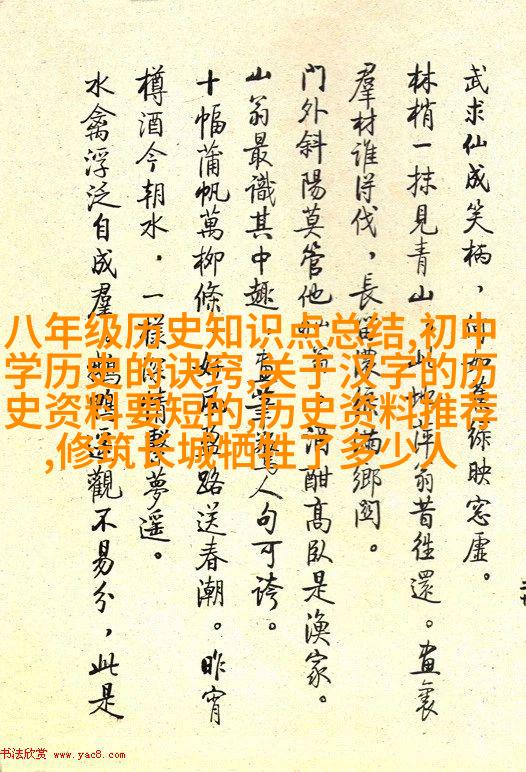 武求仙成笑柄，何如蕉綠映窓虛。
林梢一抹見青山，此地萍翁昔往還。畫裏
羣材誰得伐，長留濃綠繞鄉關。
門外斜陽莫管他
酣高臥是漁家。
山翁最識其中趣，畫筆驚人句可誇。
十幅蒲帆萬柳條，好風盈路送春潮。昨宵
樽酒今朝水，一樣深情繫夢遥。
水禽浮泛自成羣，鵝鴨遥觀不易分，此是
八年级历史知识点总结,初中
学历史的诀窍,关于汉字的历
史资料要短的,历史资料推荐
,修筑长城牺牲了多少人
书法欣赏 www.yac8.com